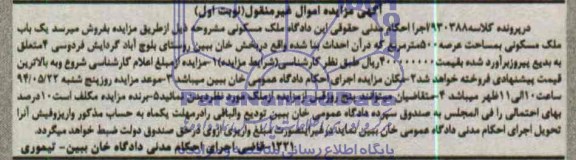 آگهی مزایده اموال غیرمنقول(نوبت اول)
درپرونده کلاسه۹۳۰۳۸۸اجرا احکام مدنی حقوقی این دادگاه ملک مسکونی مشروحه ذیل ازطریق مزایده بفروش میرسد یک باب
ملک مسکونی بمساحت عرصه۵۰۰مترمربع که درآن احداث بنا شده واقع دربخش خان ببین روستای بلوچ آباد گردایش فردوسی ۴متعلق
به بدیع پیروزبرآورد شده بقیمت ۴۰۰۰۰۰۰۰۰ریال طبق نظر کارشناسی(شرایط مزایده)۱-مزایده ازمبلغ اعلام کارشناسی شروع وبه بالاترین
قیمت پیشنهادی فروخته خواهد شد۲-مکان مزایده اجرای احکام دادگاه عمومی خان ببین میباشد۳-موعد مزایده روزپنج شنبه ۹۴/۰۵/۲۲
ساعت۱۰الی۱۱ظهر میباشد ۴-متقاضیان میتوانند پنج روزقبل ازمزایده ازملک مورد نظردیدن نمایند۵-برنده مزایده مکلف است۱۰درصد
بهای احتمالی را فی المجلس به صندوق سپرده دادگاه عمومی خان ببین تودیع والباقی رادرمهلت یکماه به حساب مذکور واریزوفیش آنرا
تحویل اجرای احکام مدنی دادگاه عمومی خان ببین نمایددرغیراینصورت مبلغ واریزی ازوی بنفع صندوق دولت ضبط خواهد میگردد.
۱۲۲۱-قاضی اجرای احکام مدنی دادگاه خان ببین- تیموری
ParsNamadData
پایگاه اطلاع رسانی